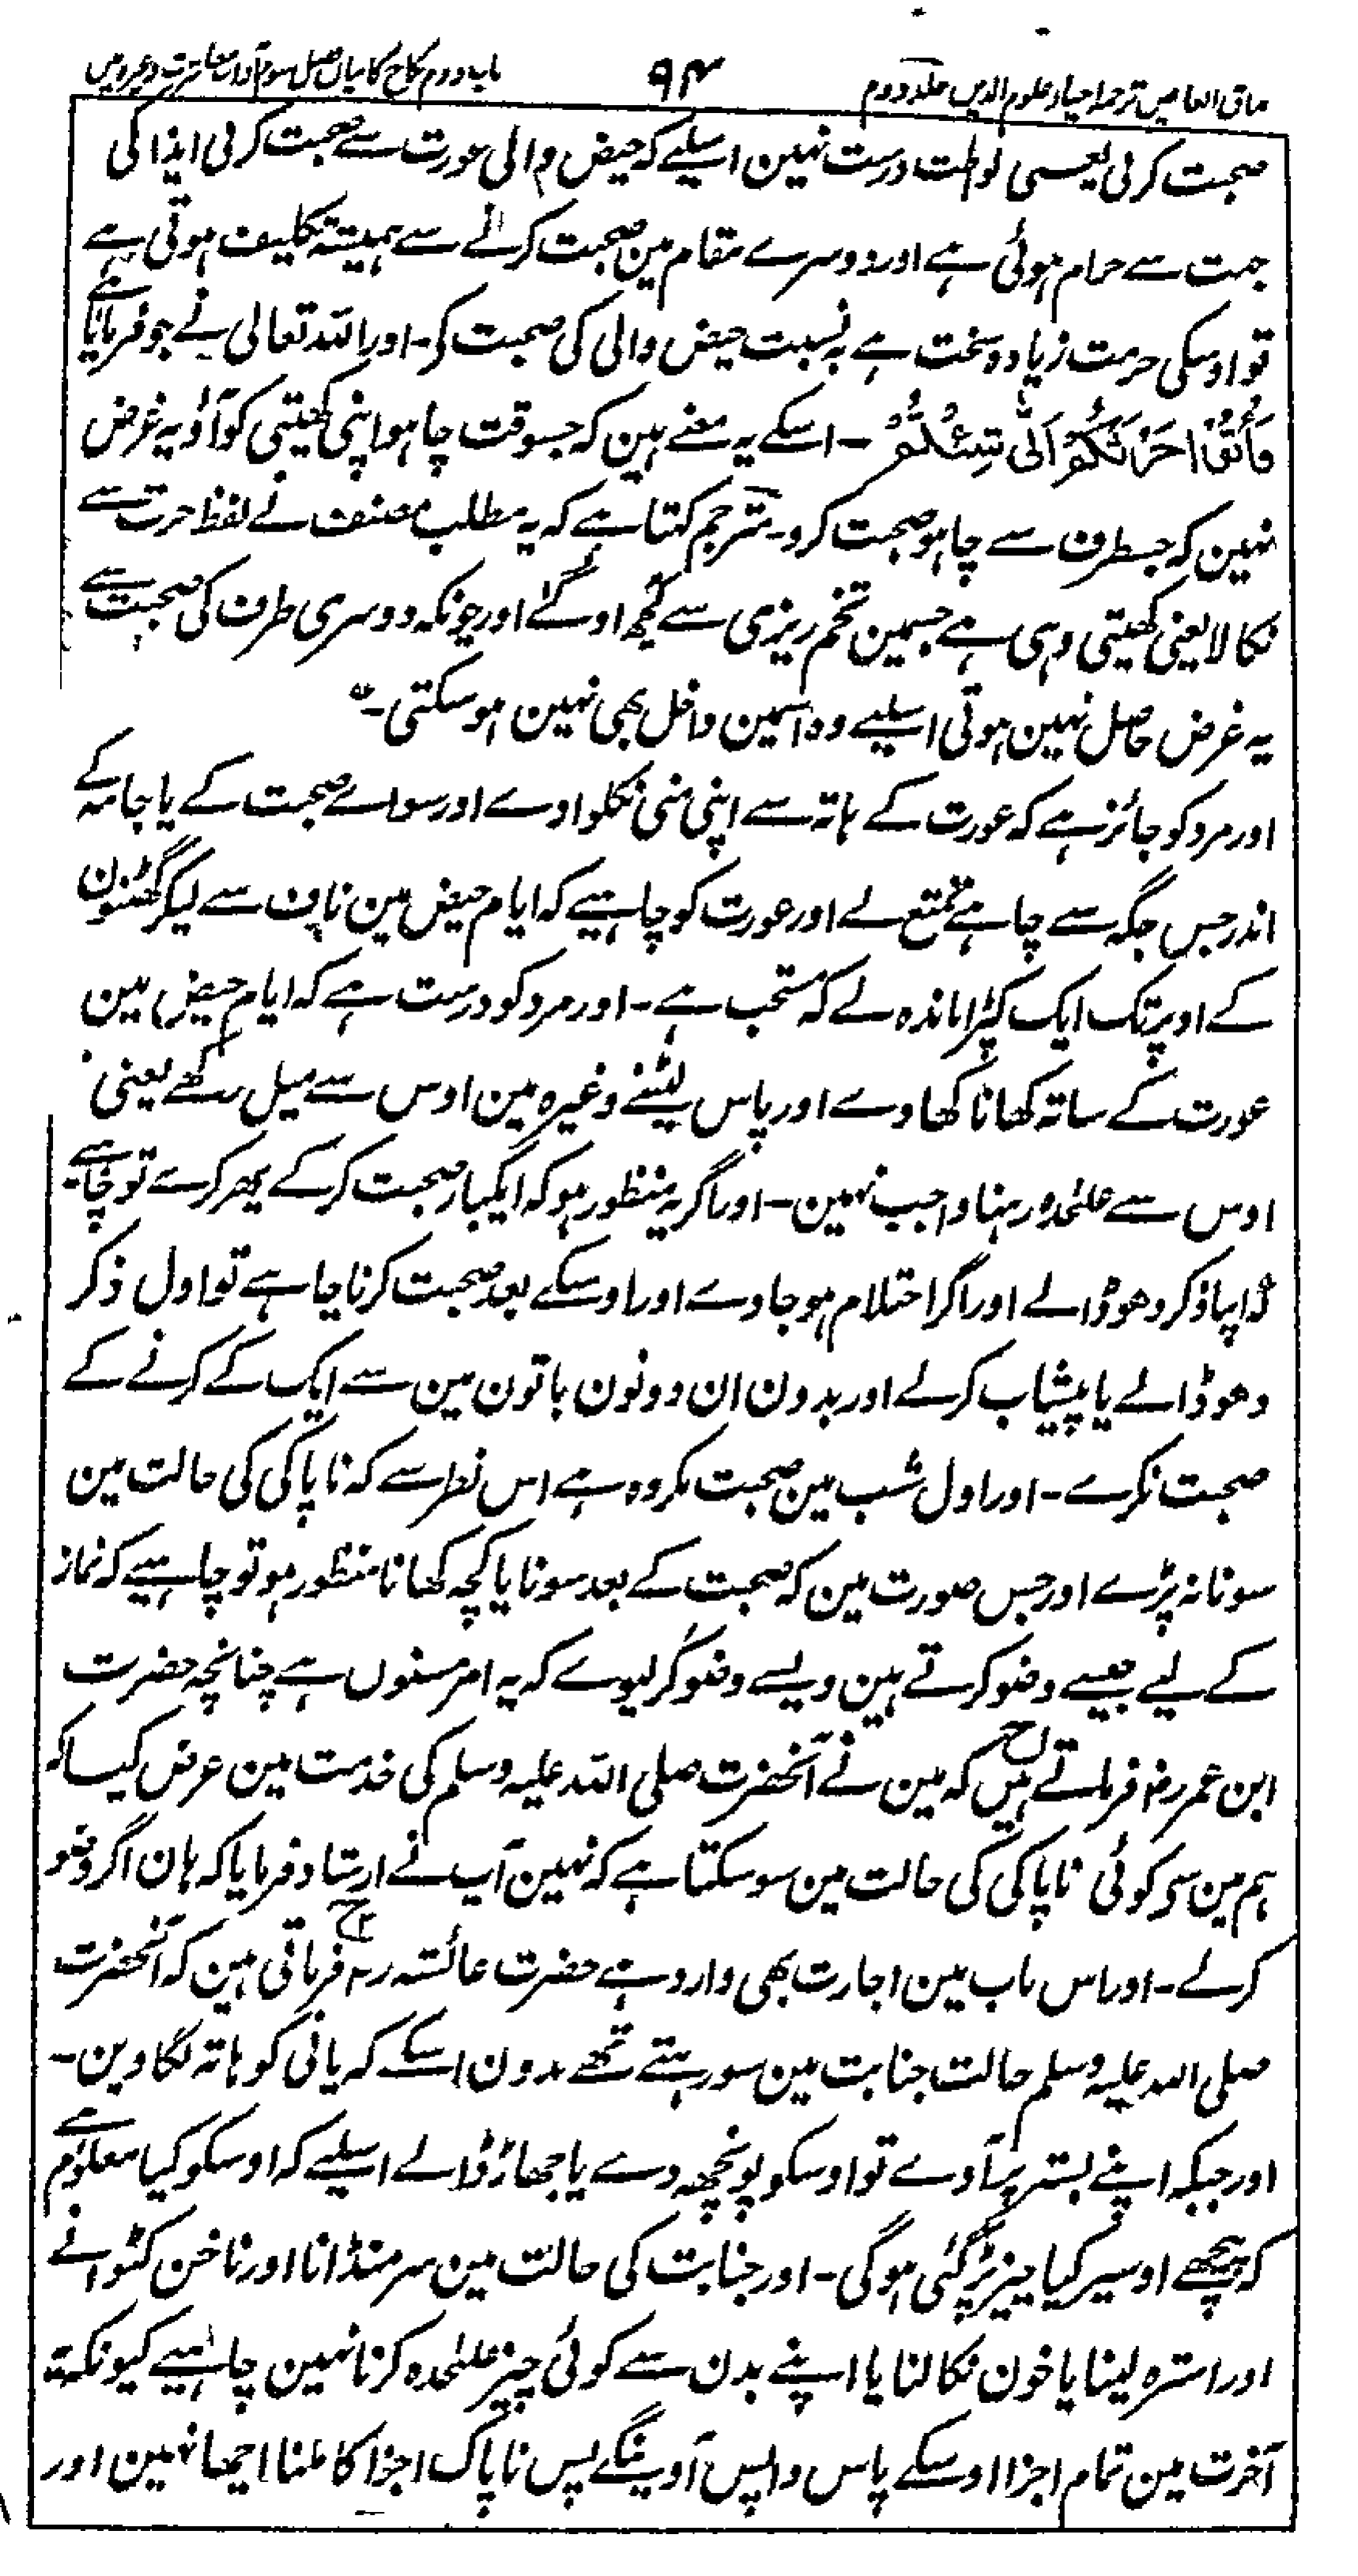 مذاق العارفین ترجمہ احیاء علوم الدین جلد دوم
۹۴
باب دوم نکاح کا بیان فصل سوم آداب معاشرت وغیرہ میں
صحبت کرنی یعنی لواطت درست نہین اسلیے کہ حیض والی عورت سے صحبت کرنی ایذا کی
جہت سے حرام ہوئی ہے اور دوسرے مقام مین صحبت کرنے سے ہمیشہ تکلیف ہوتی ہے
تو اوسکی حرمت زیادہ سخت ہے بہ نسبت حیض والی کی صحبت کو۔ اور اللہ تعالی نے جو فرمایا ہے
فَأْتُوْا حَرْثَكُمْ اَنّٰى شِئْتُمْ ۔ اسکے یہ معنے ہین کہ جسوقت چاہو اپنی کھیتی کو آؤ یہ غرض
نہین کہ جسطرف سے چاہو صحبت کرو۔ مترجم کہتا ہے کہ یہ مطلب مصنف نے لفظ حرث سے
نکالا یعنی کھیتی وہی ہے جسمین تخم ریزی سے کچھ اوگے اور چونکہ دوسری طرف کی صحبت سے
یہ غرض حاصل نہین ہوتی اسلیے وہ اسمین داخل بھی نہین ہوسکتی۔
اور مرد کو جائز ہے کہ عورت کے ہاتہ سے اپنی منی نکلوادے اور سواے صحبت کے پاجامہ کے
اندر جس جگہ سے چاہے تمتع لے اور عورت کو چاہیے کہ ایام حیض مین ناف سے لیکر گھٹنون
کے اوپر تک ایک کپڑا باندہ لے کہ مستحب ہے۔ اور مرد کو درست ہے کہ ایام حیض مین
عورت کے ساتہ کھانا کھاوے اور پاس لیٹنے وغیرہ مین اوس سے میل رکھے یعنی
اوس سے علٰحدہ رہنا واجب نہین۔ اور اگر یہ منظور ہو کہ ایکبار صحبت کرکے پھر کرے تو چاہیے
کہ اپنا ذکر دھو ڈالے اور اگر احتلام ہو جاوے اور اوسکے بعد صحبت کرنا چاہے تو اول ذکر
دھو ڈالے یا پیشاب کرلے اور بدون ان دونون باتون مین سے ایک کے کرنے کے
صحبت نکرے۔ اور اول شب مین صحبت مکروہ ہے اس نظر سے کہ ناپاکی کی حالت مین
سونا نہ پڑے اور جس صورت مین کہ صحبت کے بعد سونا یا کچہ کھانا منظور ہو تو چاہیے کہ نماز
کے لیے جیسے وضو کرتے ہین ویسے وضو کر لیوے کہ یہ امر مسنون ہے چنانچہ حضرت
ابن عمر رض فرماتے ہیں کہ مین نے آنحضرت صلی اللہ علیہ وسلم کی خدمت مین عرض کیا کہ
ہم مین سی کوئی ناپاکی کی حالت مین سو سکتا ہے کہ نہین آپ نے ارشاد فرمایا کہ ہان اگر وضو
کرلے۔ اور اس باب مین اجازت بھی وارد ہے حضرت عائشہ رض فرماتی ہین کہ آنحضرت
صلی اللہ علیہ وسلم حالت جنابت مین سو رہتے تھے بدون اسکے کہ پانی کو ہاتہ لگاوین۔
اور جبکہ اپنے بستر پر آوے تو اوسکو پونچھ دے یا جھاڑ ڈالے اسلیے کہ اوسکو کیا معلوم ہے
کہ پیچھے اوسپر کیا چیز پڑ گئی ہوگی۔ اور جنابت کی حالت مین سر منڈانا اور ناخن کٹوانے
اور استرہ لینا یا خون نکالنا یا اپنے بدن سے کوئی چیز علٰحدہ کرنا نہین چاہیے کیونکہ
آخرت مین تمام اجزا اوسکے پاس واپس آوینگے پس ناپاک اجزا کا ملنا اچھا نہین اور